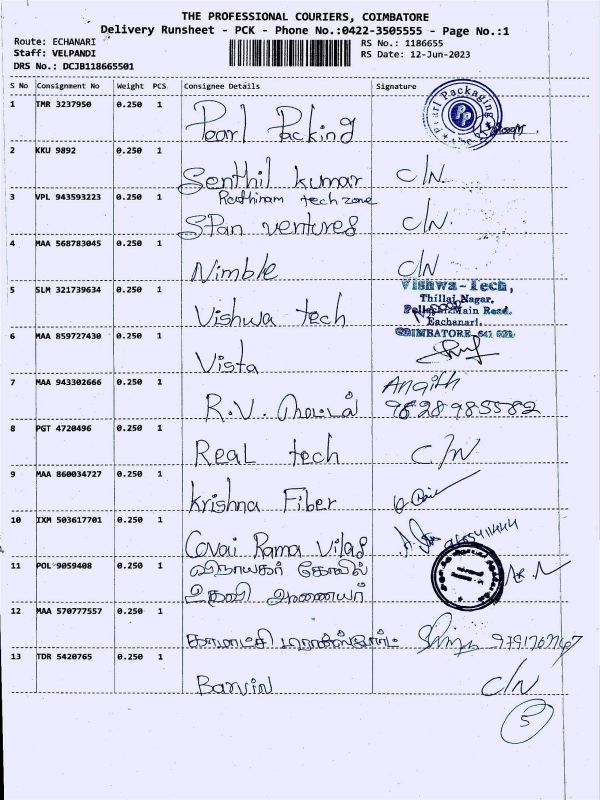 THE PROFESSIONAL COURIERS, COIMBATORE
Delivery Runsheet - PCK - Phone No.:0422-3505555 - Page No.:1
Route: ECHANARI RS No.: 1186655
Staff: VELPANDI RS Date: 12-Jun-2023
DRS No.: DCJB118665501
S No Consignment No Weight PCS Consignee Details Signature
1 TMR 3237950 0.250 1 Pearl Packing
Pearl Packaging
PP
2 KKU 9892 0.250 1 Senthil kumar C/N.
Rathinam tech zone
3 VPL 943593223 0.250 1 Span ventures C/N.
4 MAA 568783045 0.250 1 Nimble C/N
5 SLM 321739634 0.250 1 Vishwa tech
Vishwa-Tech,
Thillai Nagar,
Main Road,
Eachanari,
COIMBATORE-641 021.
6 MAA 859727430 0.250 1 Vista
7 MAA 943302666 0.250 1 R.V. Angith
9628985582
8 PGT 4720496 0.250 1 Real tech C/N.
9 MAA 860034727 0.250 1 Krishna Fiber
10 IXM 503617701 0.250 1 Covai Rama Vilas
11 POL 9059408 0.250 1 விநாயகர் கோவில்
உதவி ஆணையர்
12 MAA 570777557 0.250 1 காமாட்சி
13 TDR 5420765 0.250 1 C/N
5